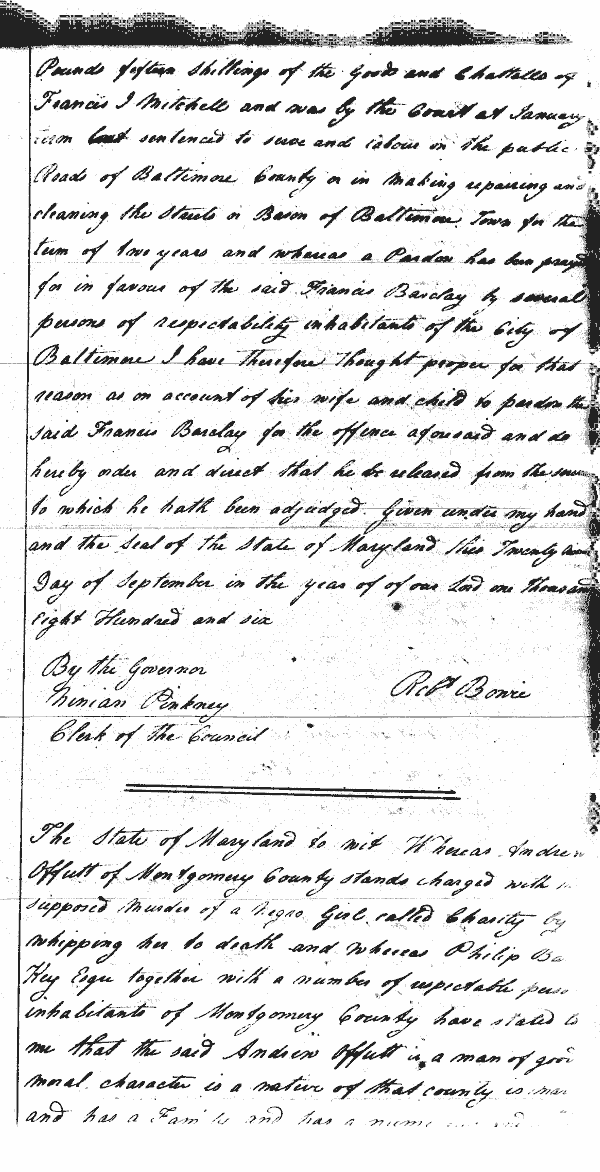 Pounds fifteen Shillings of the Goods and Chattells of
Francis I Mitchell and was by the Court at January
term sentenced to serve and labour on the public
Roads of Baltimore County or in making repairing and
cleaning the Streets or Bason of Baltimore Town for the
term of two years and whereas a Pardon has been prayed
for in favour of the said Francis Barclay by several
persons of respectability inhabitants of the City of
Baltimore I have Therefore Thought proper for that
reason as on account of his wife and child to pardon the
said Francis Barclay for the offence aforesaid and do
hereby order and direct that he be released from the
to which he hath been adjudged. Given under my hand
and the seal of the State of Maryland this Twenty
Day of September in the year of of our Lord one Thousand
Eight Hundred and six
By the Governor
Ninian Pinkney
Robt Bowie
Clerk of the Council
The State of Maryland to wit Whereas Andrew
Offutt of Montgomery County stands charged with
supposed Murder of a Negro Girl called Charity by
whipping her to death and whereas Philip Ba
Key Esqre together with a number of respectable perso
inhabitants of Montgomery County have stated to
me that the said Andrew Offutt is a man of good
moral character is a native of that county is mar
and has a Family and has a nume